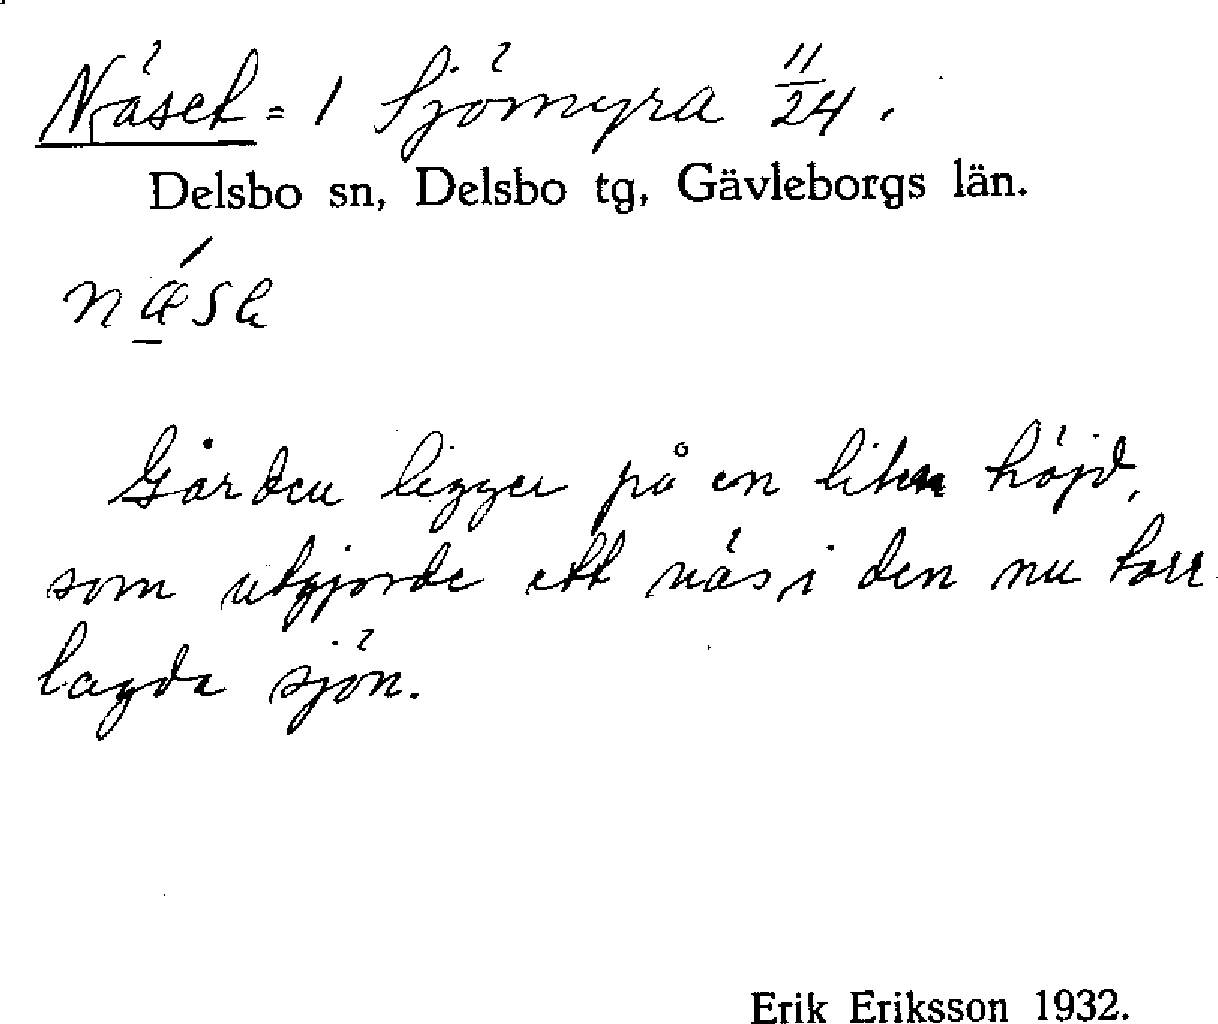 Näset = 1 Sjömyra 11/24.
Delsbo sn, Delsbo tg, Gävleborgs län.
Gården ligger på en liten höjd,
som utgjorde ett näs i den nu torr
lagda sjön.
Erik Eriksson 1932.